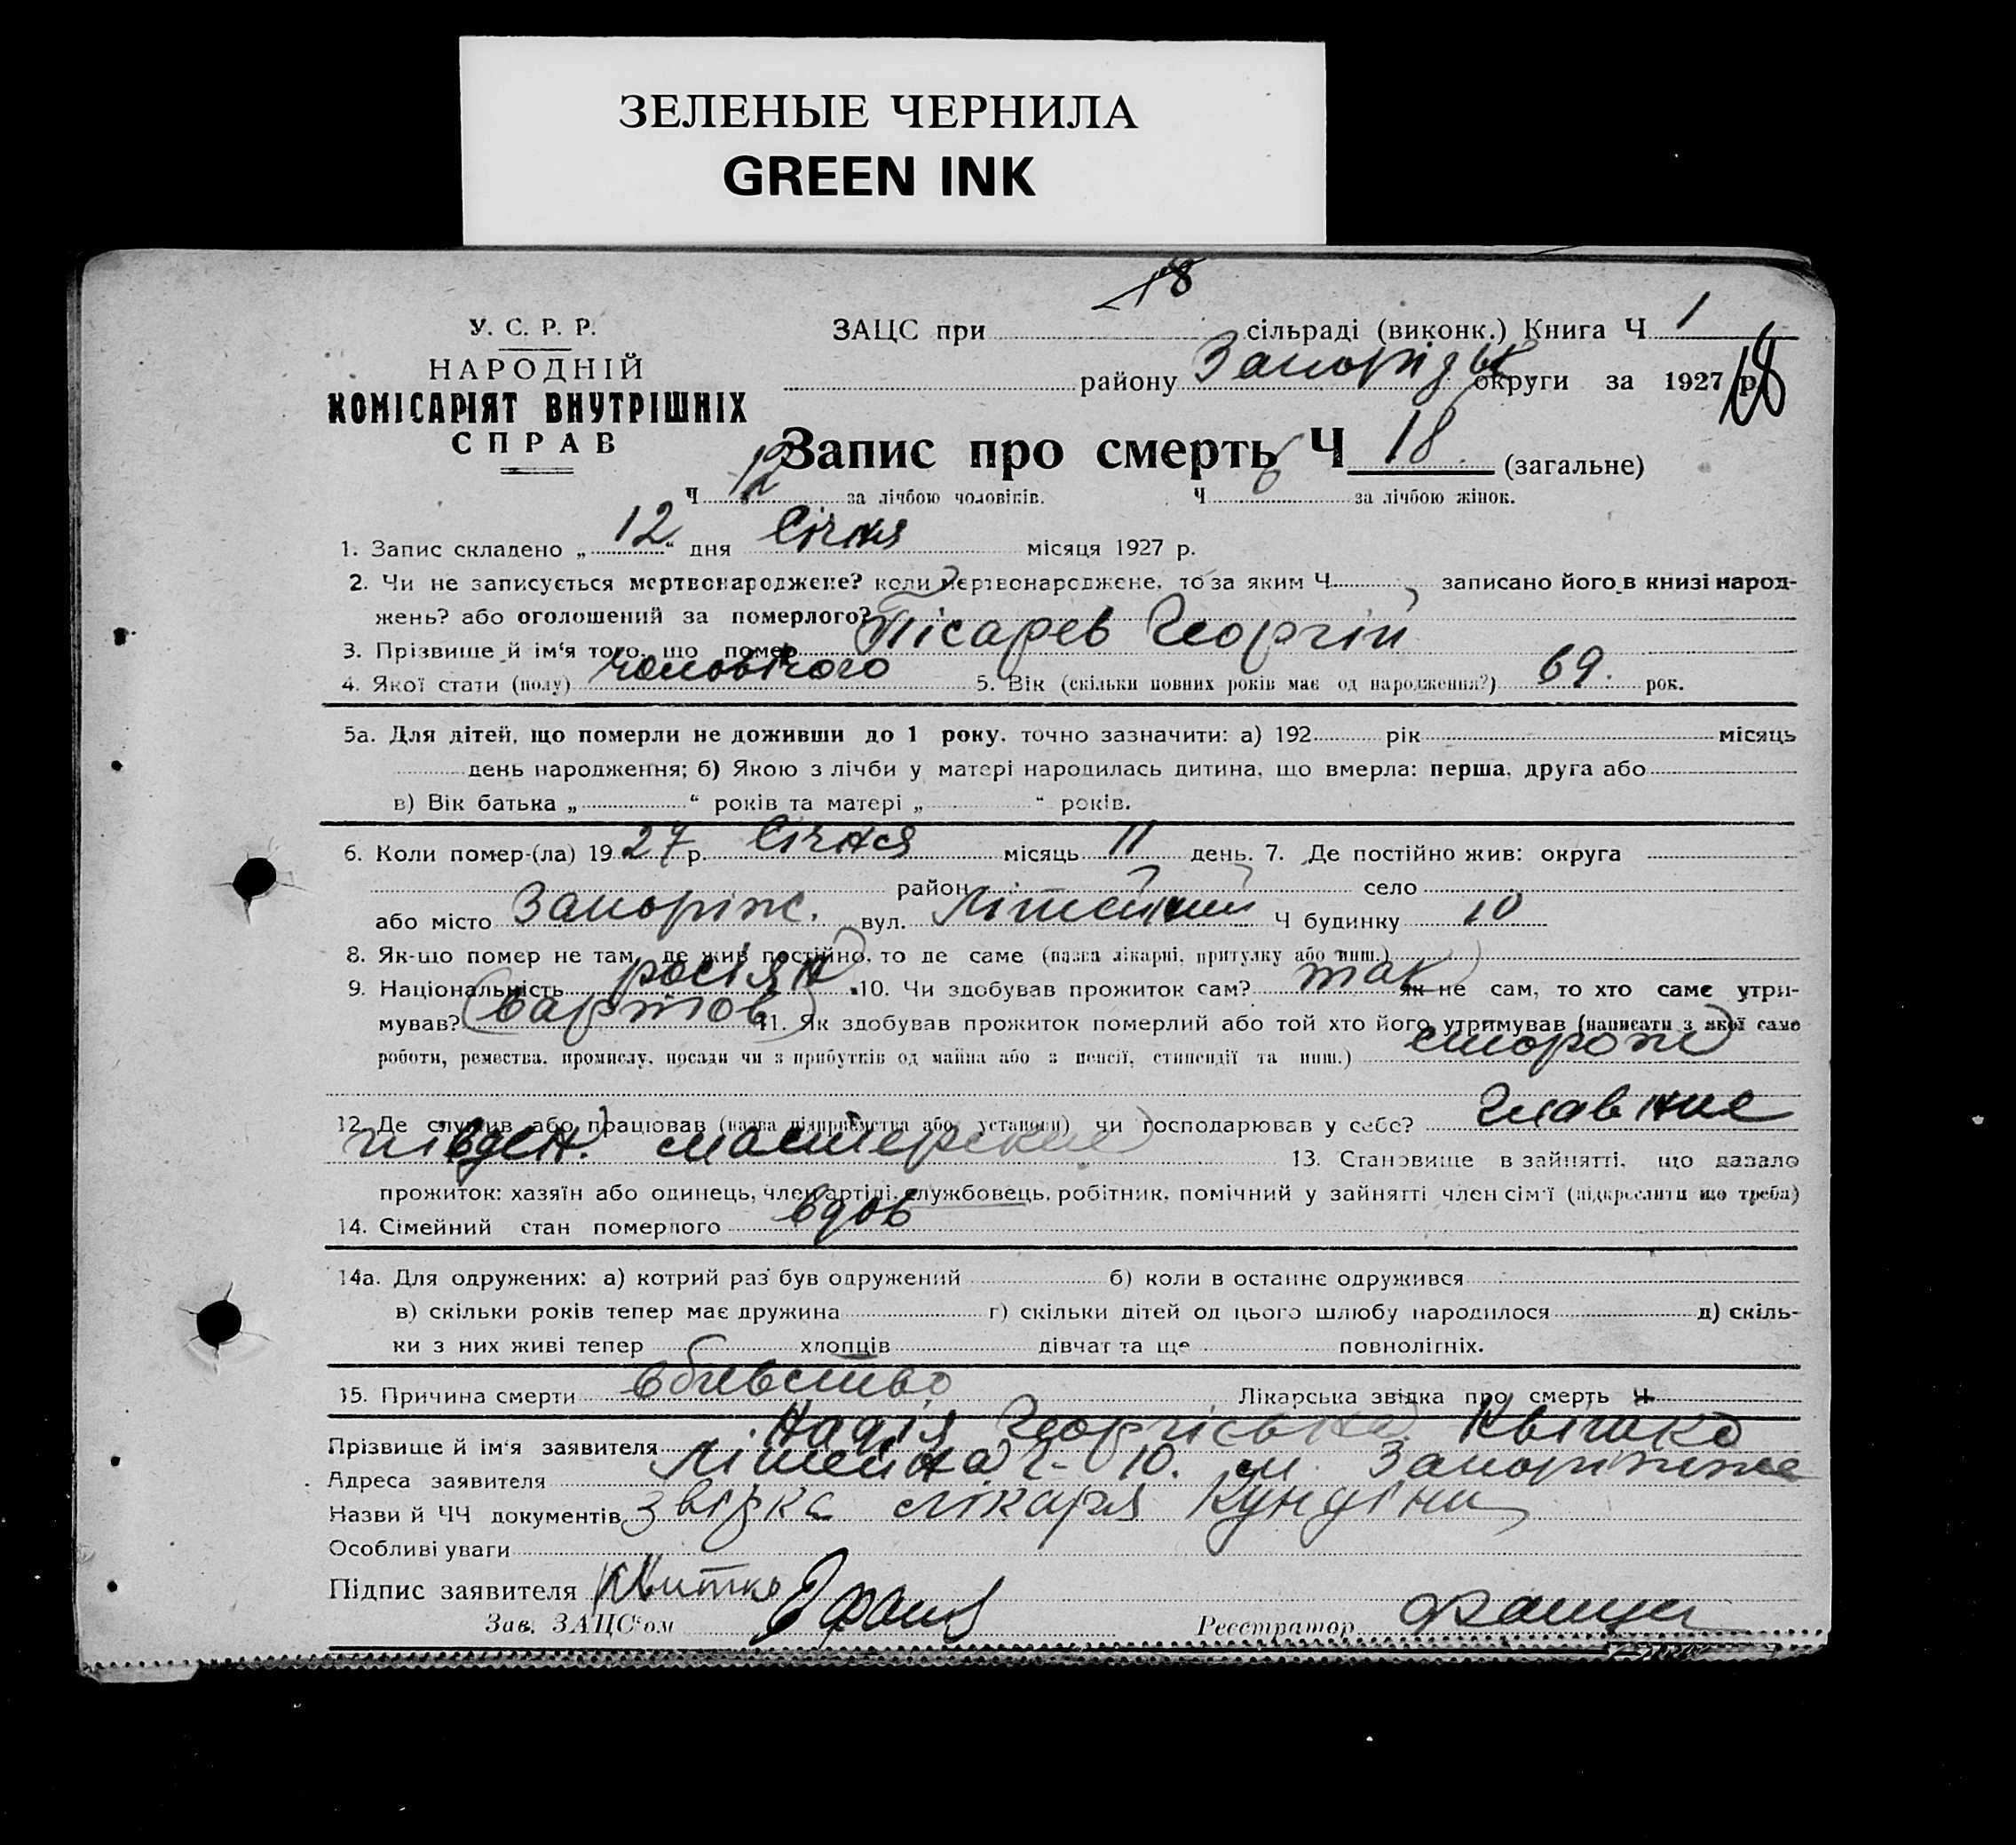 ЗЕЛЕНЫЕ ЧЕРНИЛА
GREEN INK
18
У. С. Р. Р.
НАРОДНІЙ
КОМІСАРІЯТ ВНУТРІШНІХ
СПРАВ
ЗАЦС при сільраді (виконк.) Книга Ч 1
району округи за 1927 р. 18
Запис про смерть Ч 18 (загальне)
Ч 12 за лічбою чоловіків. Ч за лічбою жінок.
1. Запис складено „ 12 “ дня Січня місяця 1927 р.
2. Чи не записується мертвонароджене? коли мертвонароджене, то за яким Ч записано його в книзі народ-
жень? або оголошений за померлого?
3. Прізвище й ім‘я того, що помер Пісарев Георгій
4. Якої стати (полу) чоловічого 5. Вік (скільки повних років має од народження?) 69. рок.
5а. Для дітей, що померли не доживши до 1 року, точно зазначити: а) 192 рік місяць
день народження; б) Якою з лічби у матері народилась дитина, що вмерла: перша, друга або
в) Вік батька „ “ років та матері „ “ років.
6. Коли помер-(ла) 19 27 р. Січня місяць 11 день. 7. Де постійно жив: округа
район село
або місто Запоріж. вул. Ч будинку 10
8. Як-що помер не там, де жив постійно, то де саме (назва лікарні, притулку або инш.)
9. Національність росіян 10. Чи здобував прожиток сам? так як не сам, то хто саме утри-
мував? (вартов) 11. Як здобував прожиток померлий або той хто його утримував (написати з якої саме
роботи, ремества, промислу, посади чи з прибутків од майна або з пенсії, стипендії та инш.) сторож
12. Де служив або працював (назва підприємства або установи) чи господарював у себе? Главние
півден. мастерские 13. Становище в зайнятті, що давало
прожиток: хазяїн або одинець, член артілі, службовець, робітник, помічний у зайнятті член сім‘ї (підкреслити що треба)
14. Сімейний стан померлого вдов
14а. Для одружених: а) котрий раз був одружений б) коли в останнє одружився
в) скільки років тепер має дружина г) скільки дітей од цього шлюбу народилося д) скіль-
ки з них живі тепер хлопців дівчат та ще повнолітніх.
15. Причина смерти вбивство Лікарська звідка про смерть Ч
Прізвище й ім‘я заявителя Надія Квітко
Адреса заявителя Літейна ч. 10. м. Запоріжже
Назви й ЧЧ документів звідка лікаря
Особливі уваги
Підпис заявителя Квитко
Зав. ЗАЦС‘ом
Реєстратор